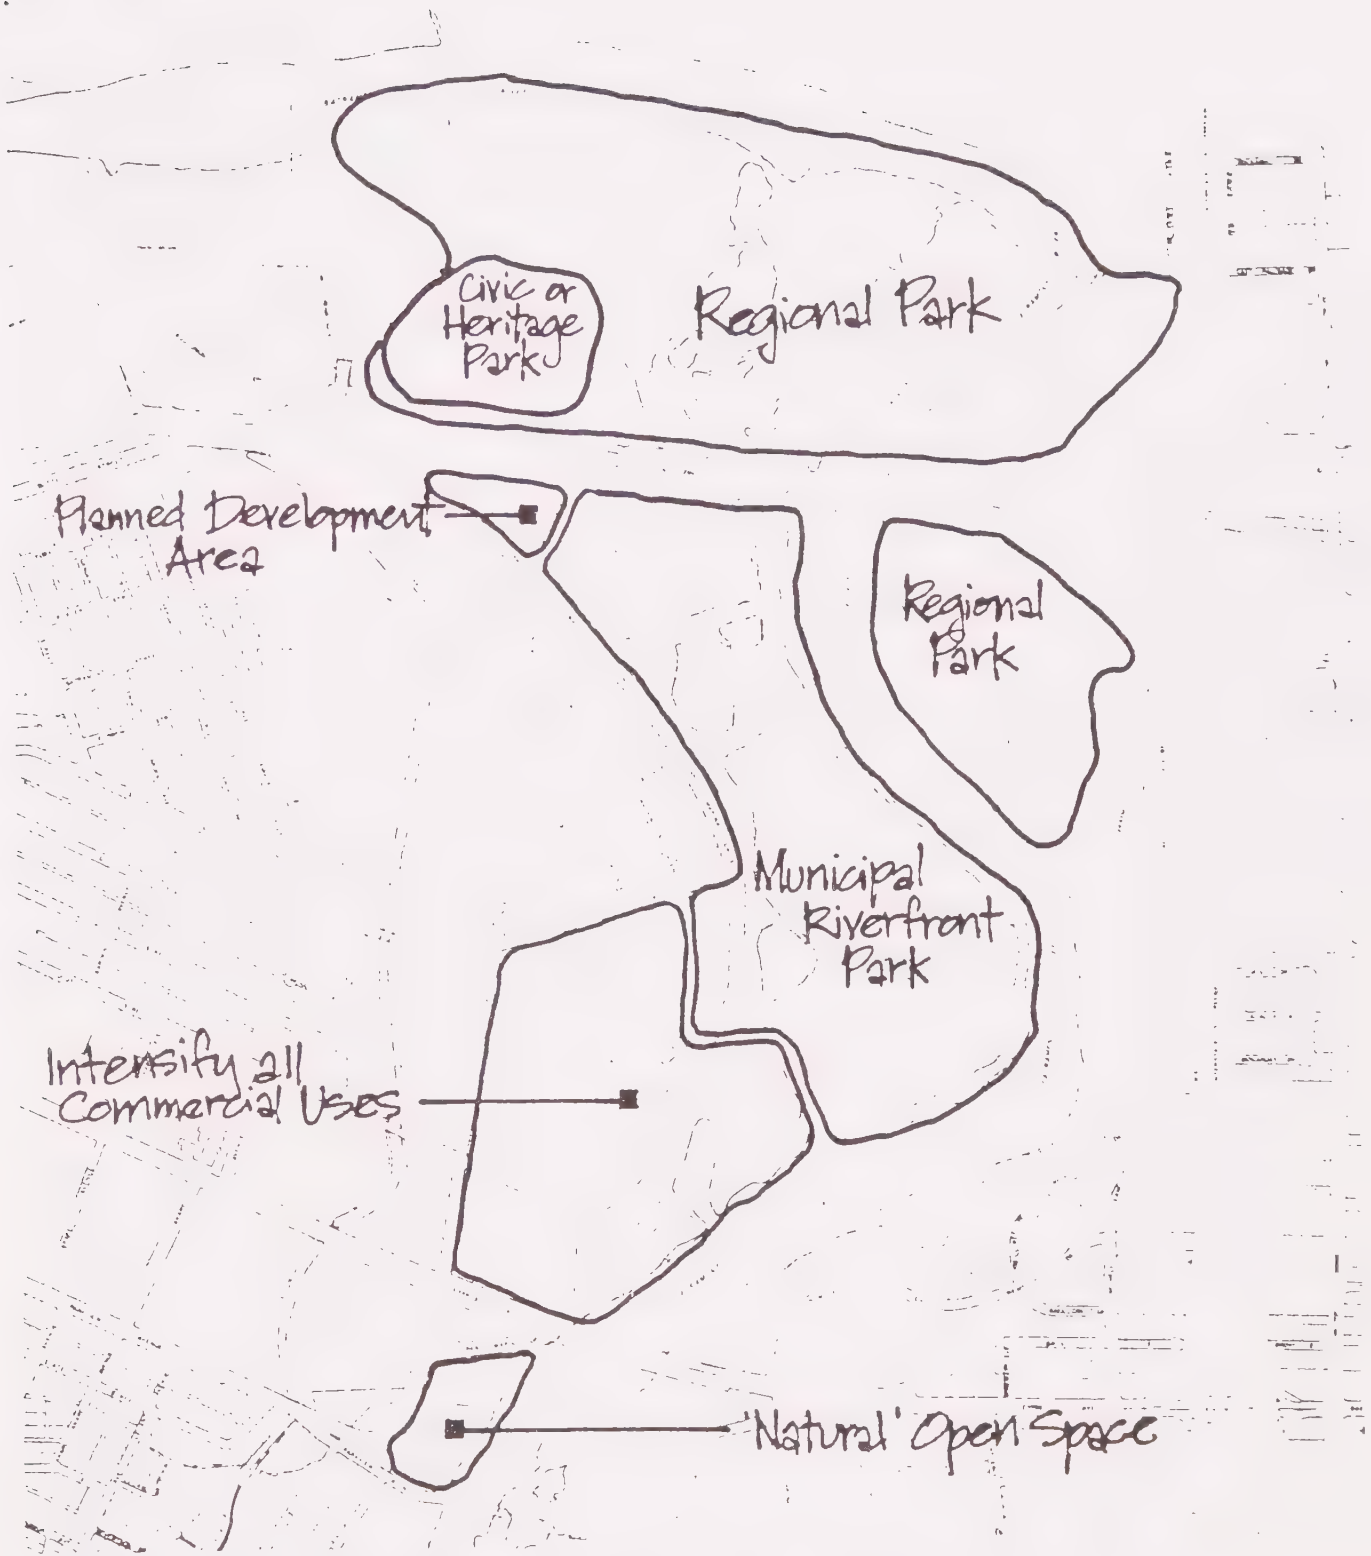 Civic or
Heritage
Park
Regional Park
Planned Development
Area
Regional
Park
Municipal
Riverfront
Park
Intensify all
Commercial Uses
'Natural' Open Space